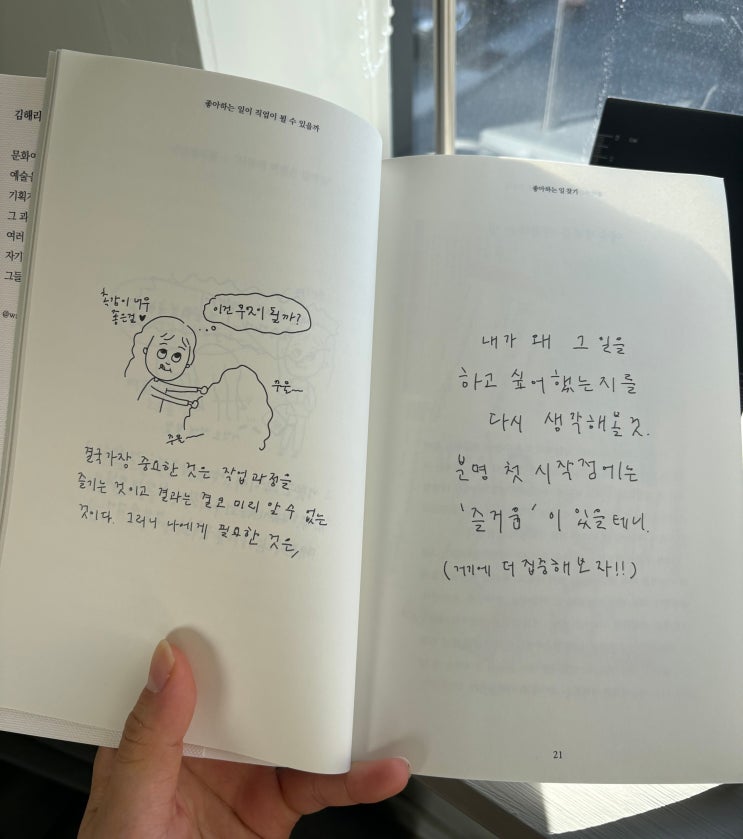 김해리
문화
예술
기획
그 과
여러
자기
그들
좋아하는 일이 직업이 될 수 있을까
촉감이 너무
좋은걸♥
이건 무엇이 될까?
주욱~
주욱~
결국 가장 중요한 것은 작업 과정을
즐기는 것이고 결과는 결코 미리 알 수 없는
것이다. 그러니 나에게 필요한 것은,
좋아하는 일 찾기
내가 왜 그 일을
하고 싶어했는지를
다시 생각해볼 것.
분명 첫 시작점에는
'즐거움'이 있을테니.
(거기에 더 집중해보자!!)
21